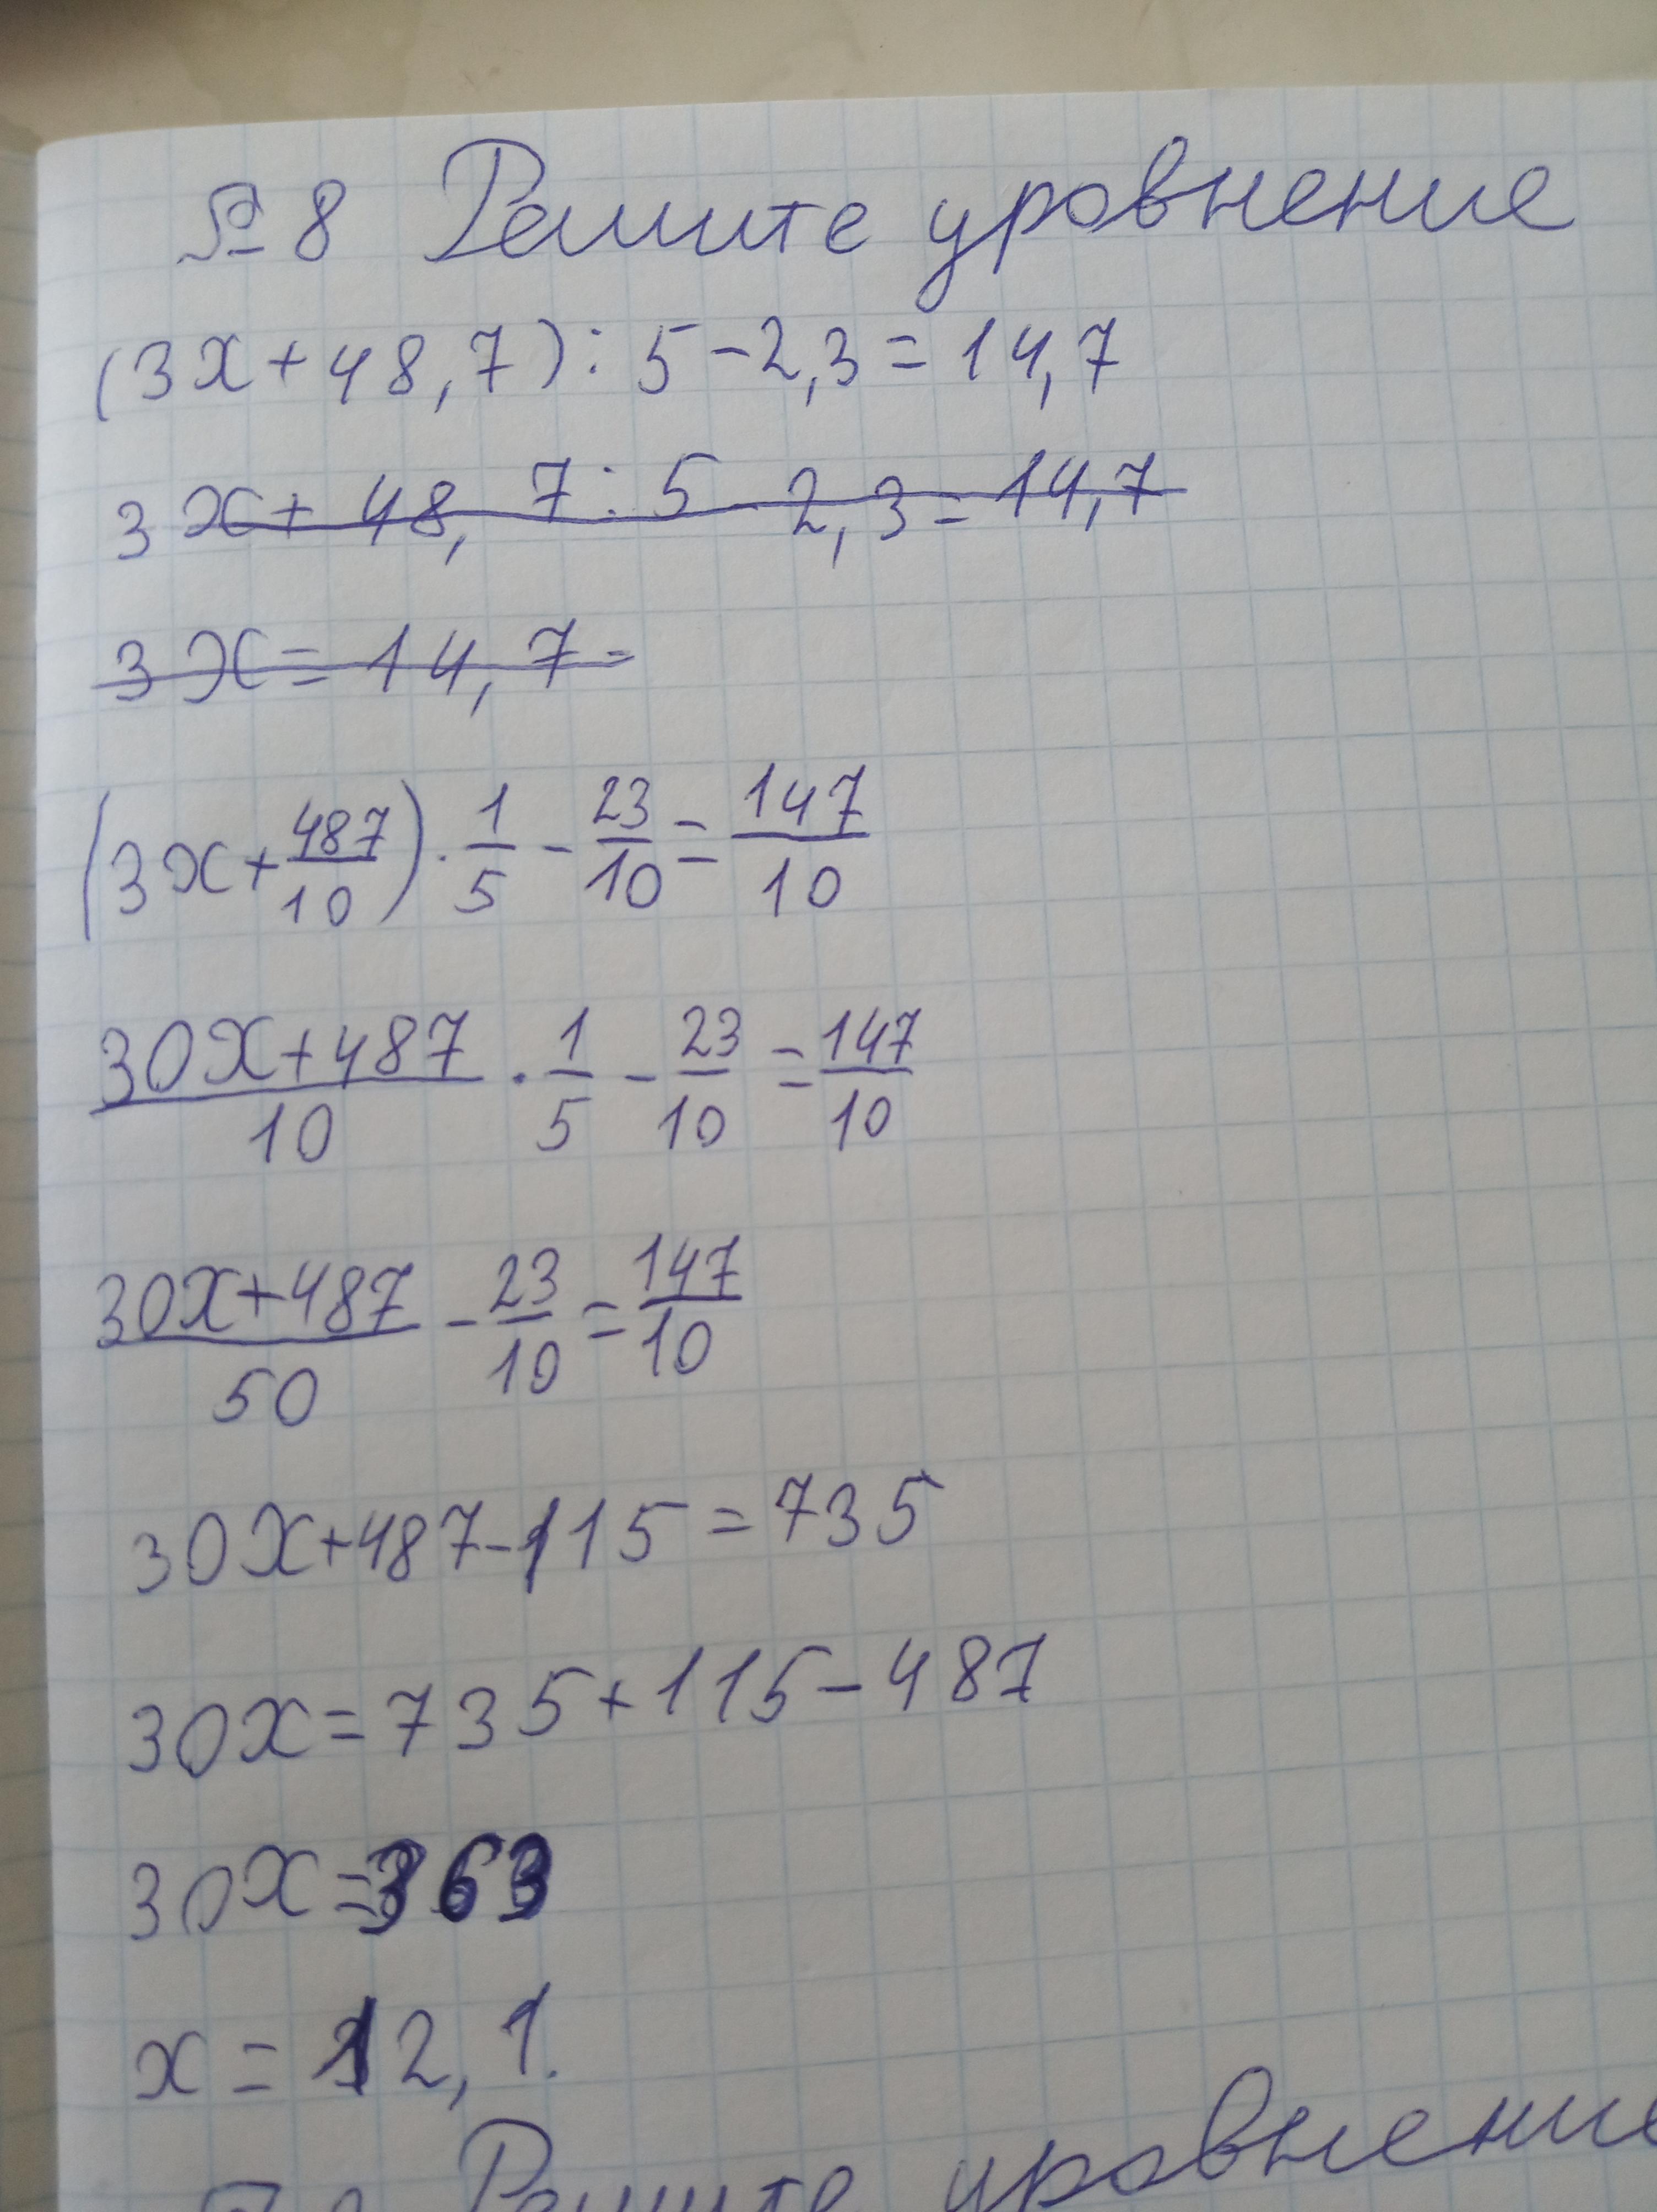 № 8 Решите уровнение
(3x+48,7):5-2,3=14,7
3x+48,7:5-2,3=14,7
3x=14,7-
(3x+487/10)·1/5-23/10=147/10
30x+487/10·1/5-23/10=147/10
30x+487/50-23/10=147/10
30x+487-115=735
30x=735+115-487
30x=363
x=12,1.
Решите уровнение